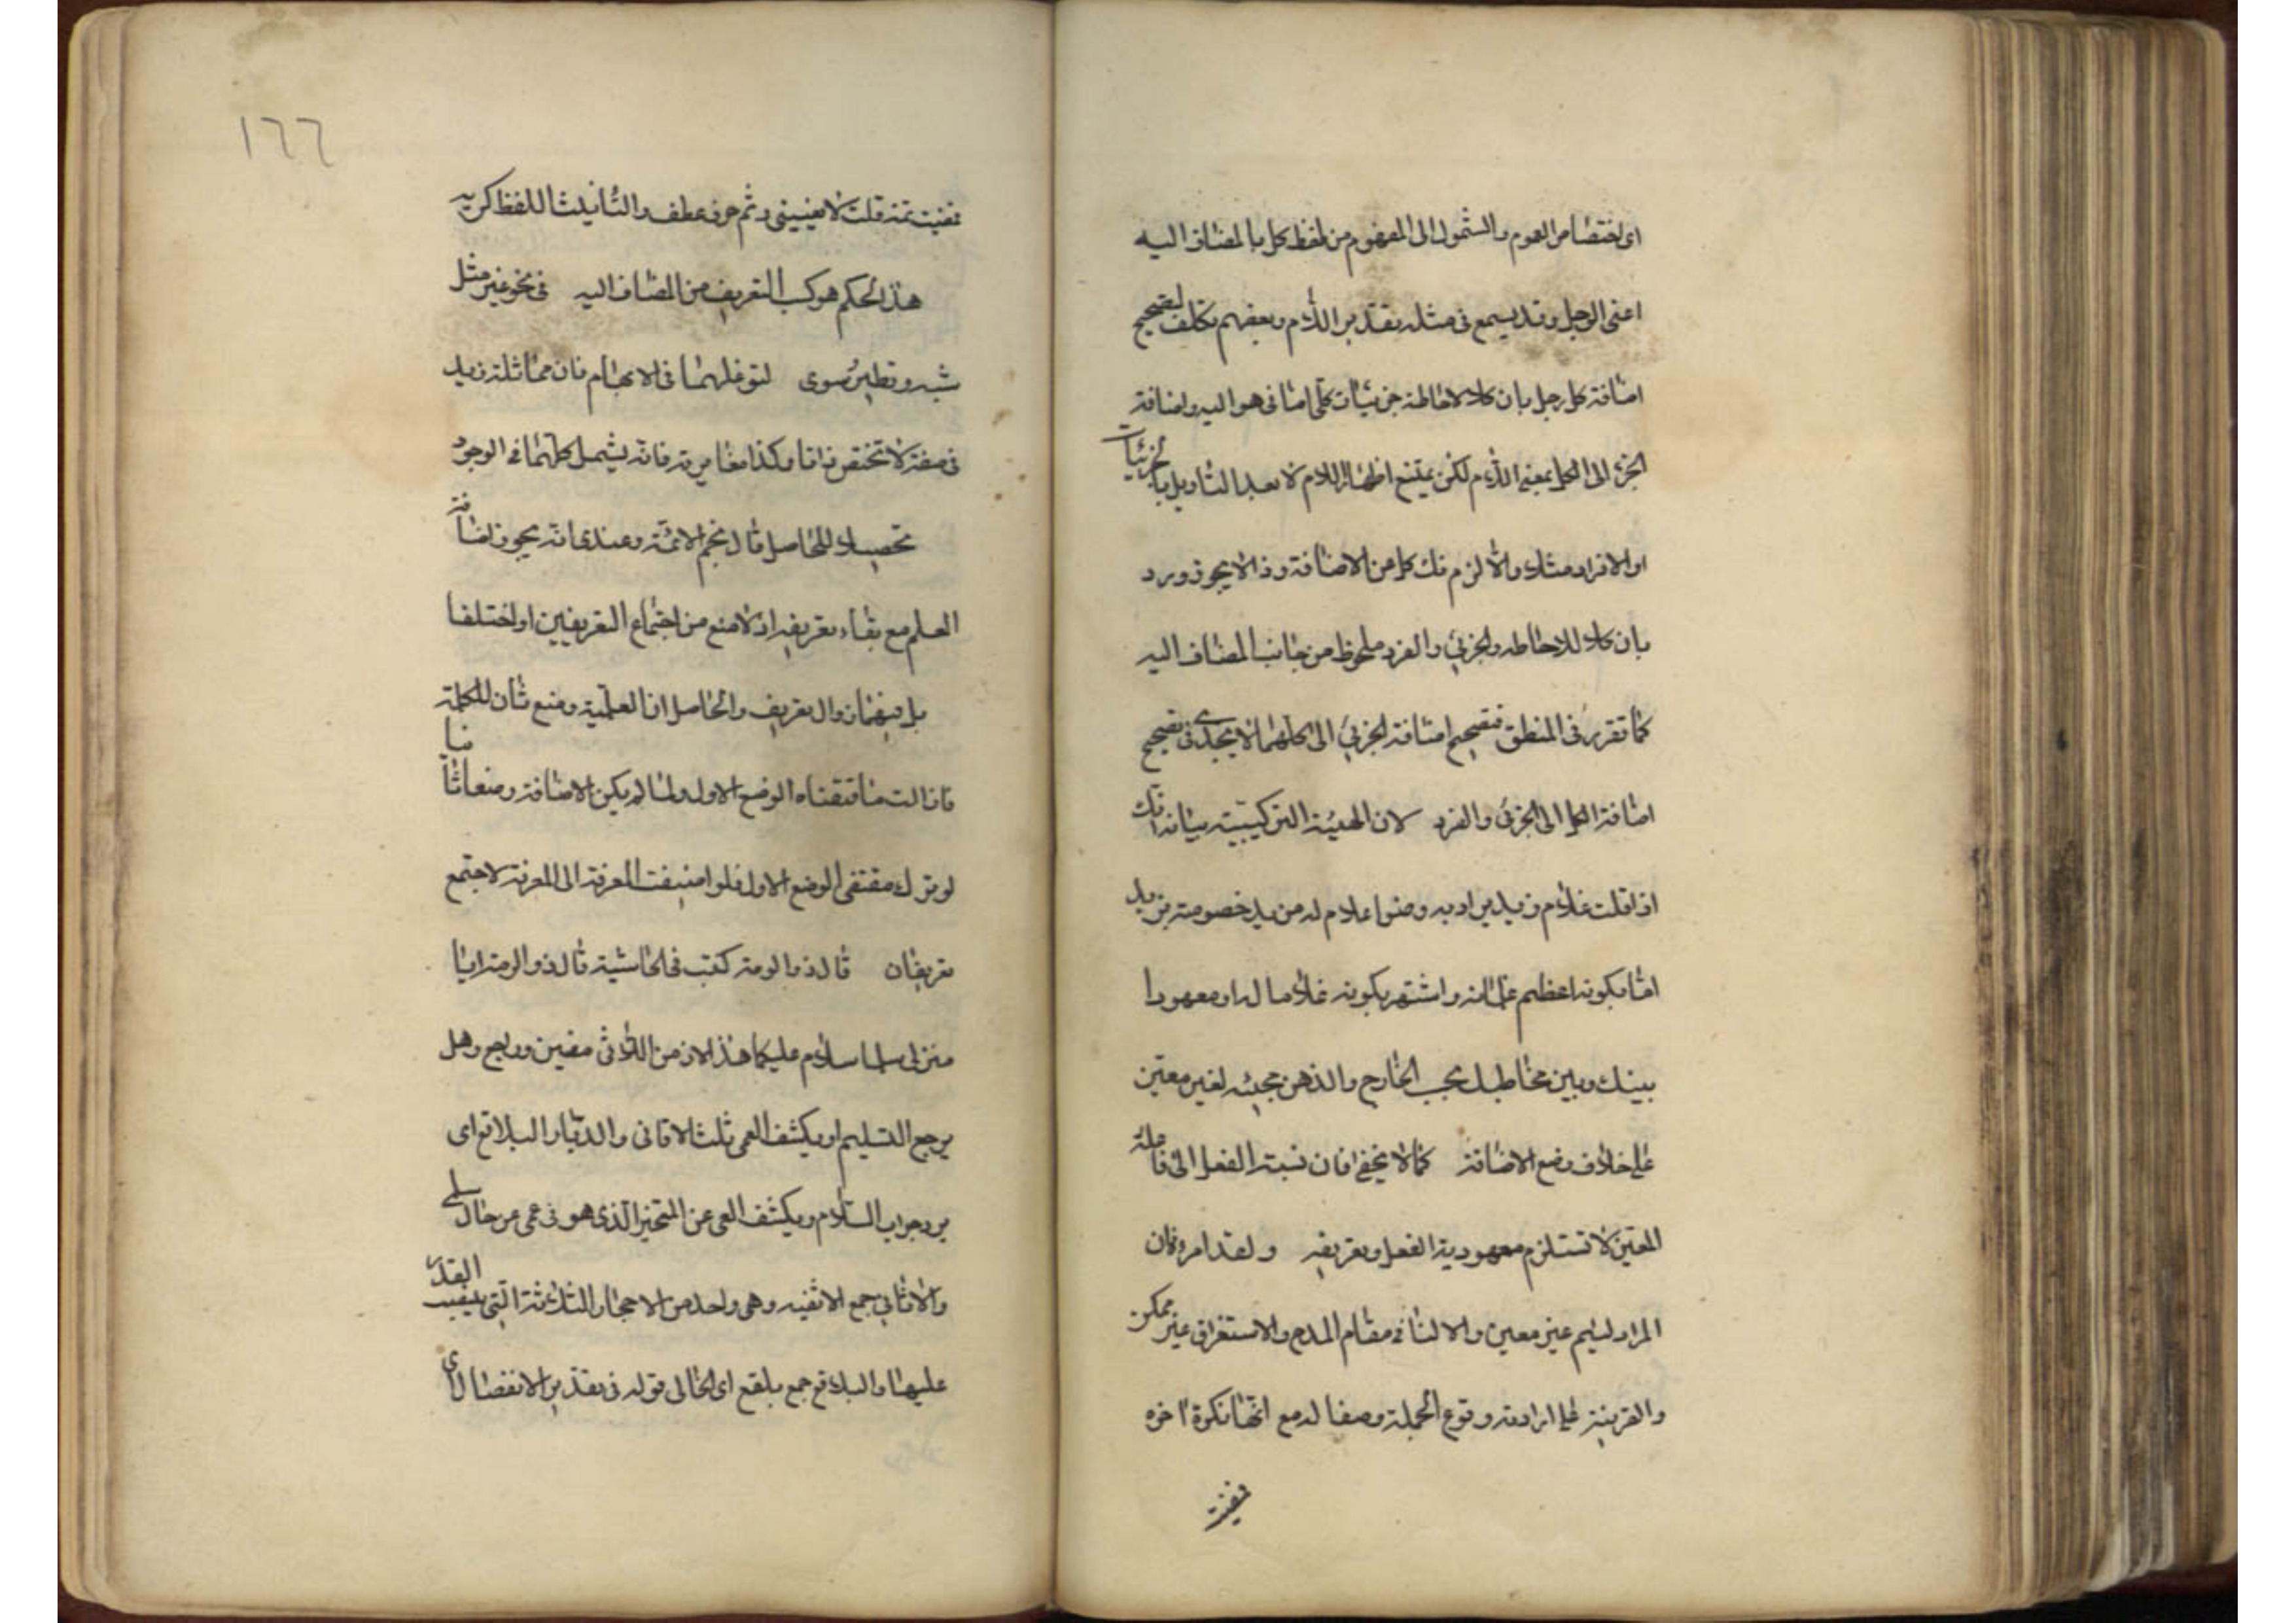 اى اختصاص العموم والشمول الى المفهوم من لفظ كل بالمضاف اليه
اعنى الرجل وقد يسمع فى مثله بتقدير اللام وبعضهم تكلف لتصحيح
اضافة كل رجل بان كلا لاحاطة جزئيات كلى اضافى هو اليه واضافة
الجزء الى الكل بمعنى اللام لكن يمتنع اظهار اللام الا بعد التاويل بالجزئيات
او الافراد مثلا والا لزم فك كل من الاضافة وذا لا يجوز ورد
بان كلا للاحاطه والجزئى والفرد ملحوظ من جانب المضاف اليه
كما تقرر فى المنطق فتصحيح اضافة الجزئى الى الكل هما لا يجدى فى تصحيح
اضافة الكل الى الجزئى والفرد لان الهيئة التركيبية بيانه انك
اذا قلت غلام زيد يراد به وضعا غلام له مزيد خصوصته بزيد
اما بكونه اعظم غلمانه واشتهر بكونه غلاما له او معهودا
بينك وبين مخاطبك بحسب الخارج والذهن مجيئه لغير معين
على خلاف وضع الاضافة كما لا يخفى فان نسبة الفعل الى فاعله
المعين لا تستلزم معهودية الفعل وتعريفه ولقد امر فان
المراد لئيم غير معين والا لنافى مقام المدح والاستغراق غير ممكن
والقرينة على ارادته وقوع الجملة وصفا له مع انها نكرة اخره
فمضيت
فمضيت ثمة قلت لا يعنينى وثم حرف عطف والتأنيث اللفظ كربه
هذا الحكم هو كسب التعريف من المضاف اليه فى نحو غير مثل
شبه ونظير سوى لتوغلهما فى الابهام فان مماثلة زيد
فى صفة لا تختص ذاتا وكذا مغايرته فانه يشمل كلما فى الوجود
تحصيلا للحاصل قال نجم الائمة وعندى انه يجوز اضافة
العلم مع بقاء تعريفه اذ لا منع من اجتماع التعريفين او اختلفا
بل فيهما زوال تعريف والحاصل ان العلمية وضع ثان للكلمة
فازالت مناقتضاه الوضع الاول ولما لم يكن الاضافة وضعا ثانيا
لو ترك مقتضى الوضع الاول فلو اضيفت المعرفة الى المعرفة لاجتمع
تعريفان قال ذو الرمة كتب فى الحاشية قال ذو الرمة ايا
منزلى سلما سلام عليكما هذا الازمن اللاتى مضين رواجع وهل
يرجع التسليم او يكشف العمى ثلث الاثافى والديار البلاقع اى
يرد جواب السلام ويكشف العمى عن المتحير الذى هو فى عمى عن حال سلمى
والاثافى جمع الاثفيه وهى واحد من الاحجار الثلاثة التى ينصب القدر
عليها والبلاقع جمع بلقع اى الخالى قوله فى تقدير الانفصال اى
١٦٦